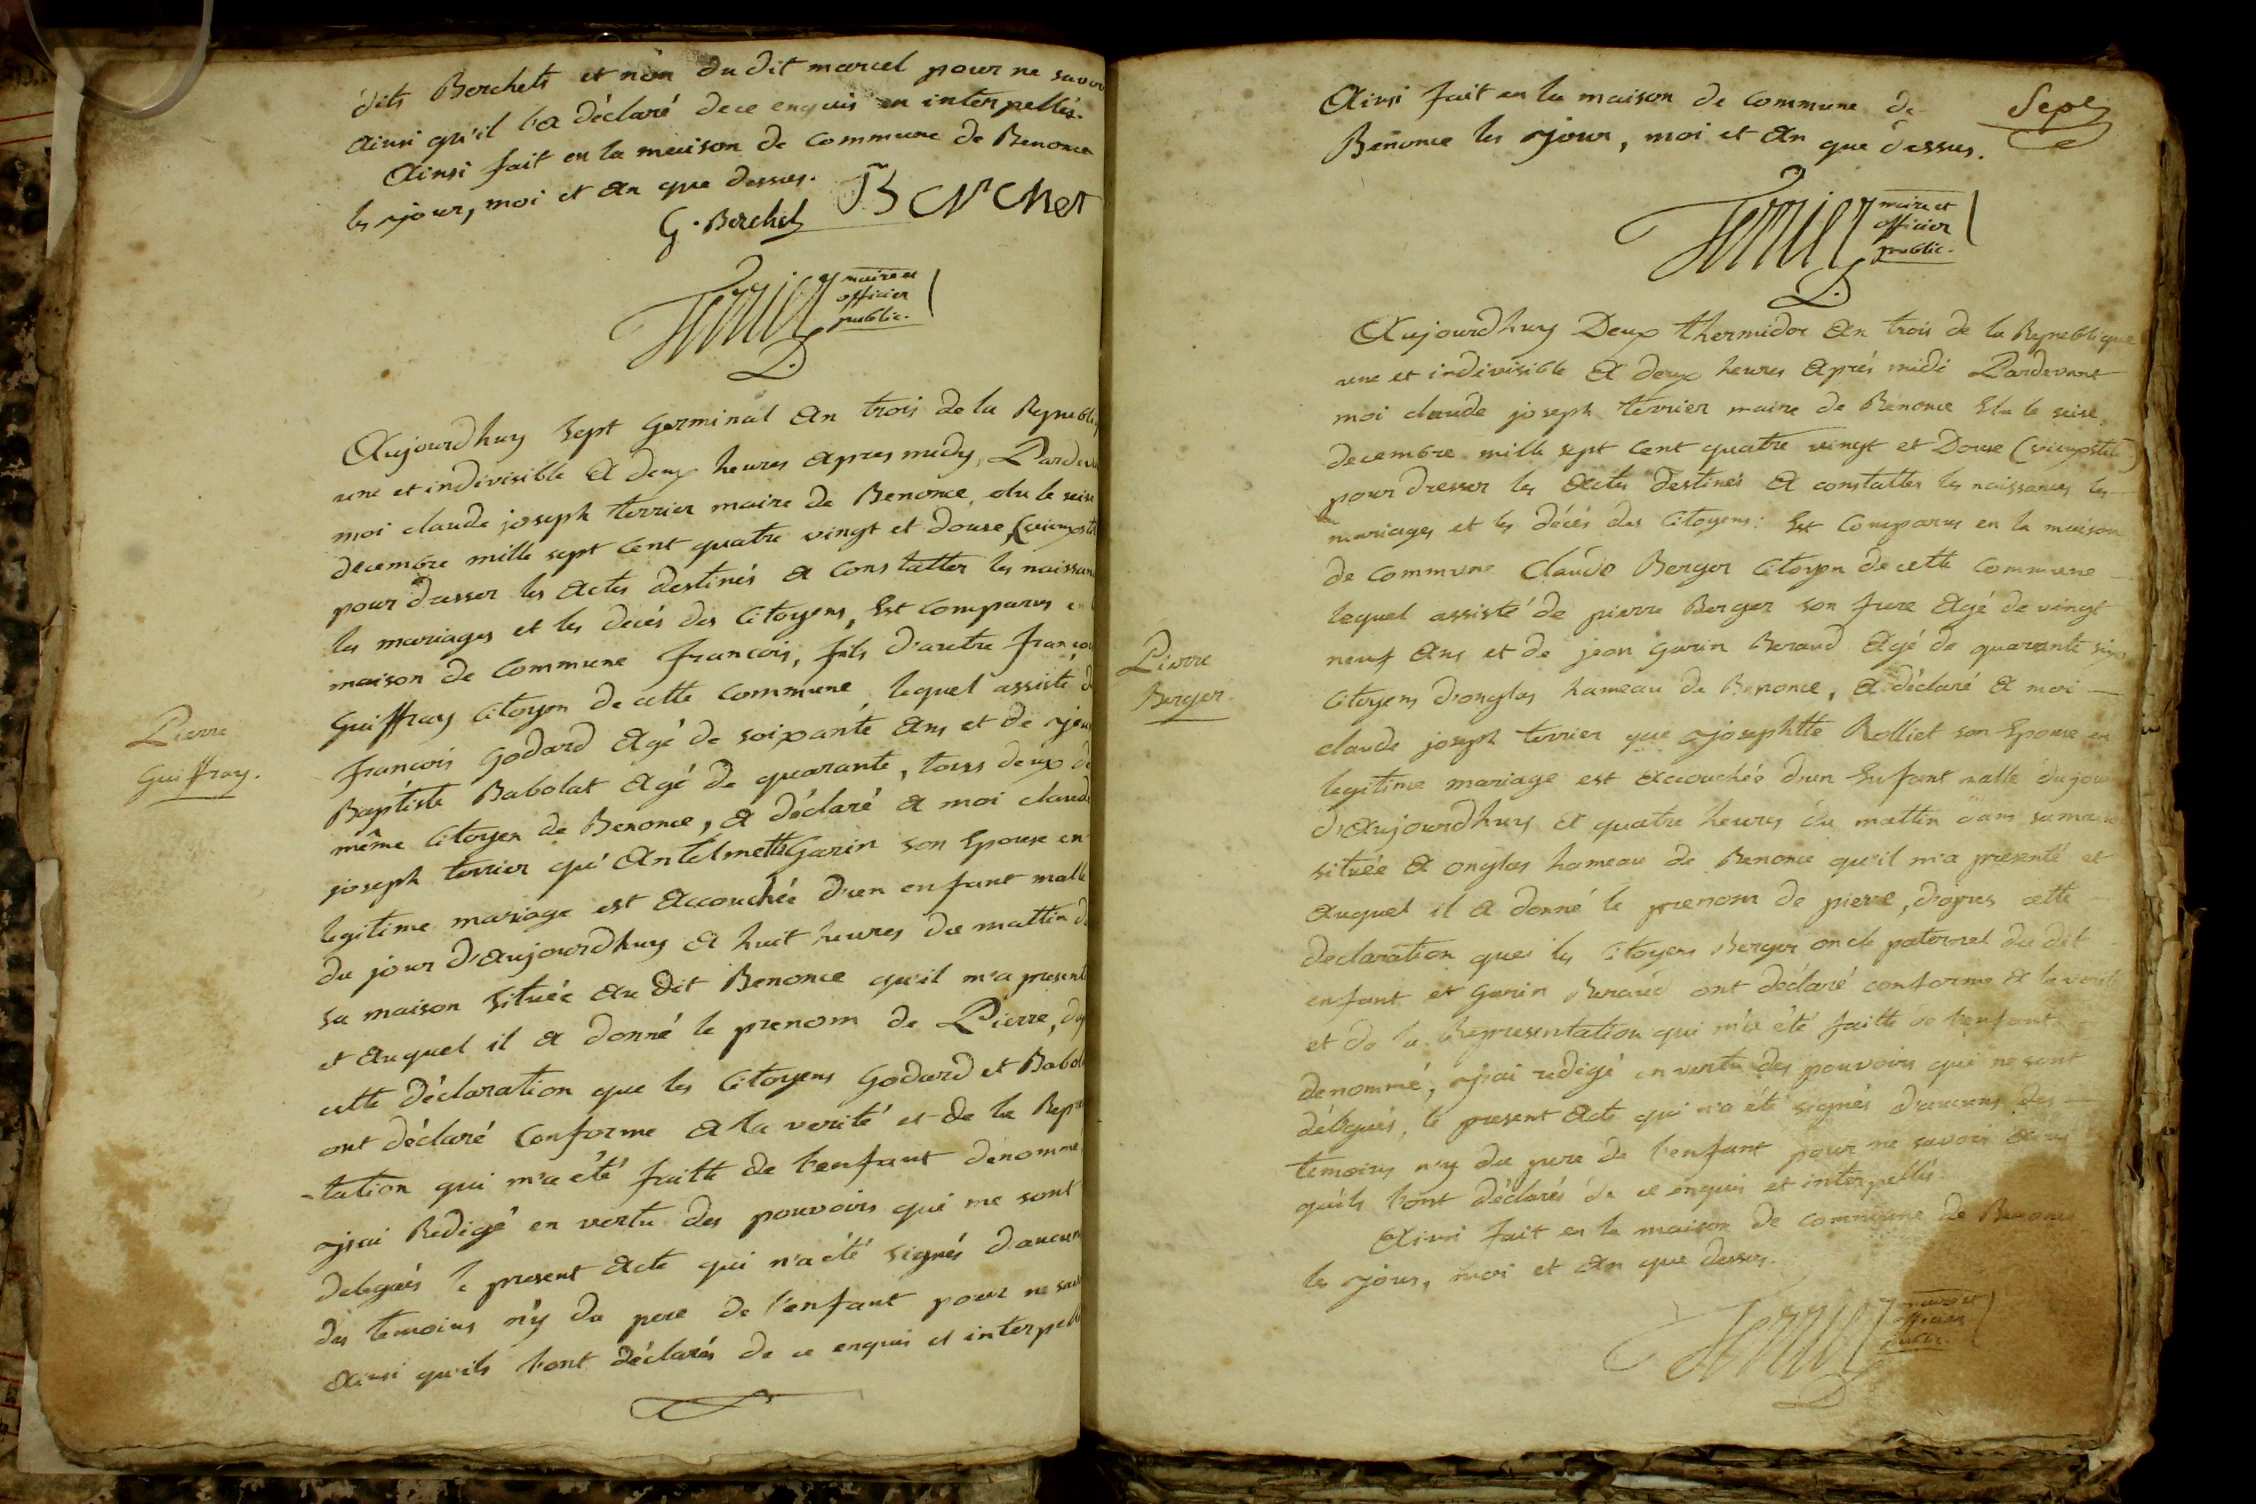 dits Berchets et non du dit marcel pour ne savoir
ainsi qu'il l'a déclaré de ce enquis en interpellés.
Ainsi fait en la maison de commune de Benonce
les jour, moi et an que dessus.
G. Berchet
Terrier maire et
officier
public.
Aujourdhuy Sept Germinal an trois de la
une et indivisible a deux heures apres midy,
moi claude joseph terrier maire de Benonce, elu le seise
decembre mille sept cent quatre vingt et douse,
pour dresser les actes destinés a constatter les
les mariages et les decés des Citoyens, Est comparus
maison de commune francois, fils d'autre
Guiffray Citoyen de cette commune lequel assisté
francois Godard agé de soixante ans et de
Baptiste Babolat agé de quarante, touss deux de
même Citoyen de Benonce, a déclaré a moi claude
joseph terrier qu'Antelmette Garin son Epouse en
legitime mariage est accouchée d'un enfant malle
du jour d'aujourdhuy a huit heures du mattin
sa maison située au dit Benonce qu'il m'a
et auquel il a donné le prenom de Pierre,
cette déclaration que les Citoyens Godard et
ont déclaré conforme a la verité et de la
-tation qui m'a été faitte de l'enfant denommé
j'ai Redigé en vertu des pouvoirs qui me sont
delegués le present acte qui n'a été signés d'aucun
des temoins n'y du pere de l'enfant pour ne
ainsi qu'ils l'ont déclarés de ce enquis et
Pierre
Guiffray.
Sept
Ainsi fait en la maison de commune de
Benonce les jour, moi et an que dessus.
Terrier maire et
officier
public.
Aujourdhuy Deux thermidor an trois de la Republique
une et indivisible a deux heures aprés midi Pardevant
moi claude joseph terrier maire de Benonce Elu le seise
decembre mille sept cent quatre vingt et Douse
pour dresser les actes destinés a constatter les naissances les
mariages et les décés des Citoyens: Est comparus en la maison
de commune Claude Berger Citoyen de cette commune
lequel assisté de pierre Berger son frere agé de vingt
neuf ans et de jean Garin Beraud agé de quarante
Citoyens d'onglas hameau de Benonce, a déclaré a moi
claude joseph terrier que josephtte Rolliet son Epouse en
legitime mariage est accouchée d'un Enfant malle du jour
d'aujourdhuy a quatre heures du mattin dans sa maison
située a onglas hameau de Benonce qu'il m'a presenté et
auquel il a donné le prenom de pierre, d'apres cette
declaration que les Citoyens Berger oncle paternel du dit
enfant et Garin Beraud ont déclaré conforme a la verité
et de la Representation qui m'a été faitte de l'enfant
denommé, j'ai redigé en vertu des pouvoirs qui me sont
délégués, le present acte qui n'a été signés d'aucuns des
temoins n'y du pere de l'enfant pour ne savoir ainsi
qu'ils l'ont déclarés de ce enquis et interpellés.
Ainsi fait en la maison de commune de Benonce
les jour, moi et an que dessus.
Terrier maire et
officier
public.
Pierre
Berger.